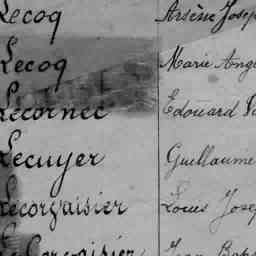 Lecoq Arsène Josep
Lecoq Marie Ang
Lecornec Edouard
Lecuyer Guillaume
Lecorvaisier Louis Jose
Jean Bap